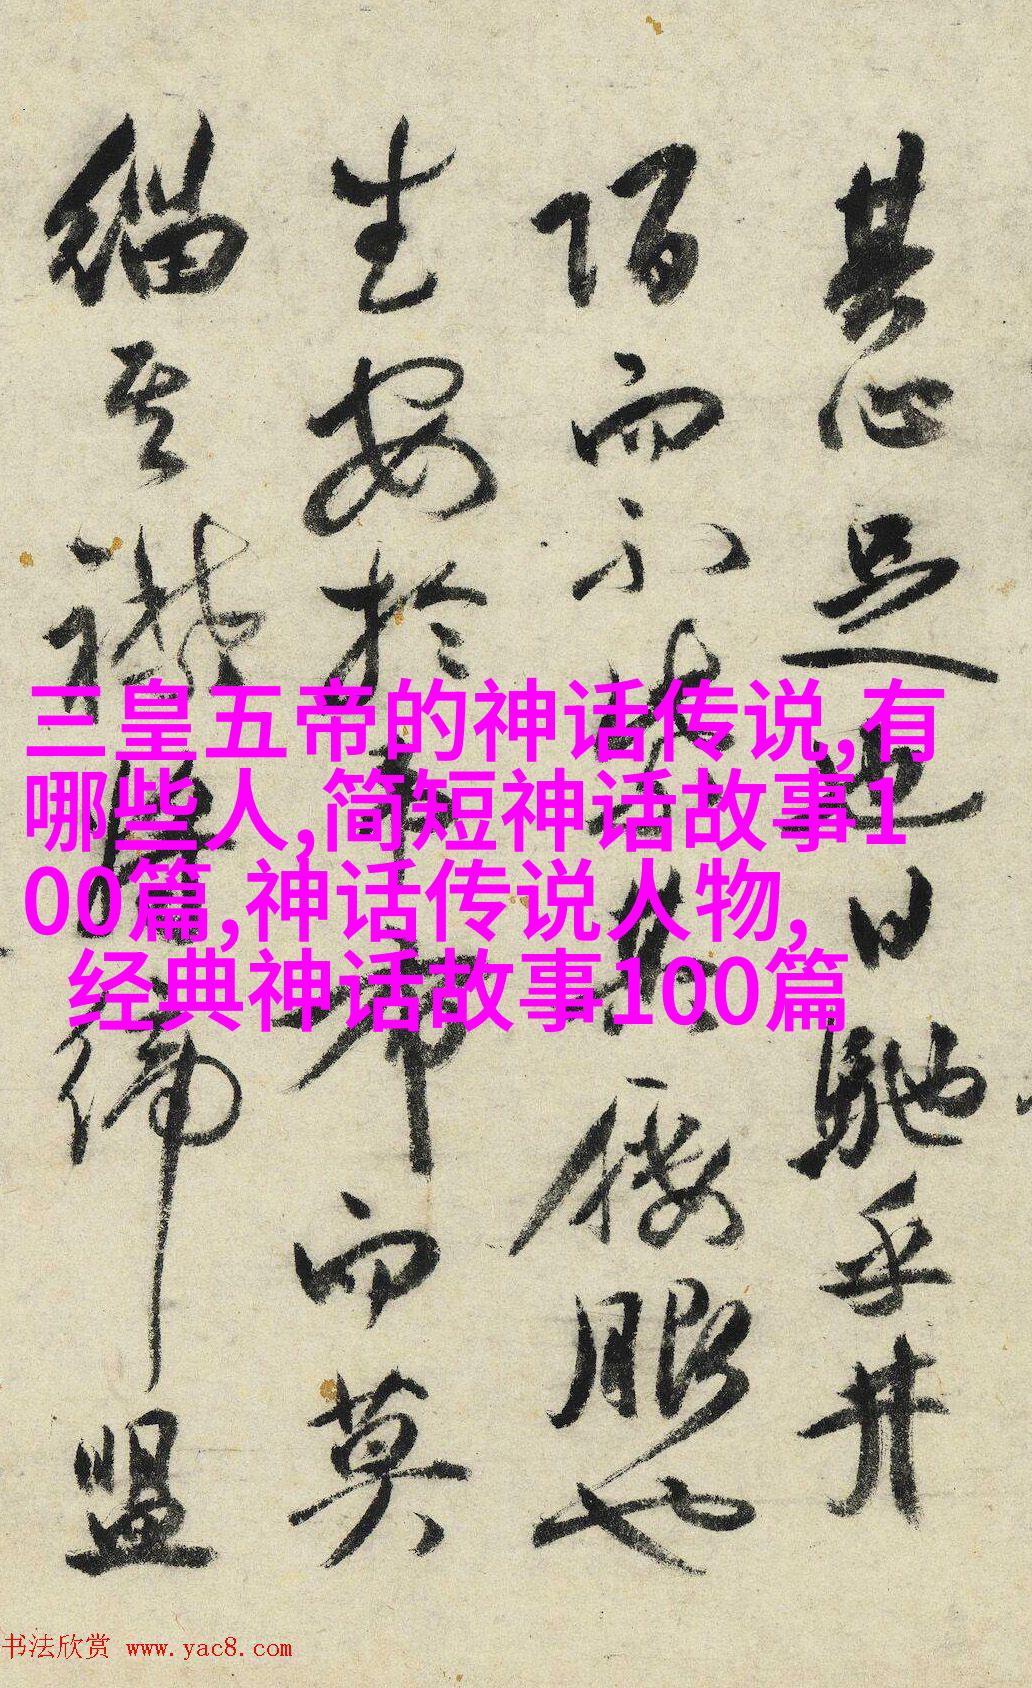 其心足迹日馳乎井
陌而不其也
生安於而莫
緇其盟
三皇五帝的神话传说,有
哪些人,简短神话故事1
00篇,神话传说人物,
经典神话故事100篇
书法欣赏 www.yac8.com